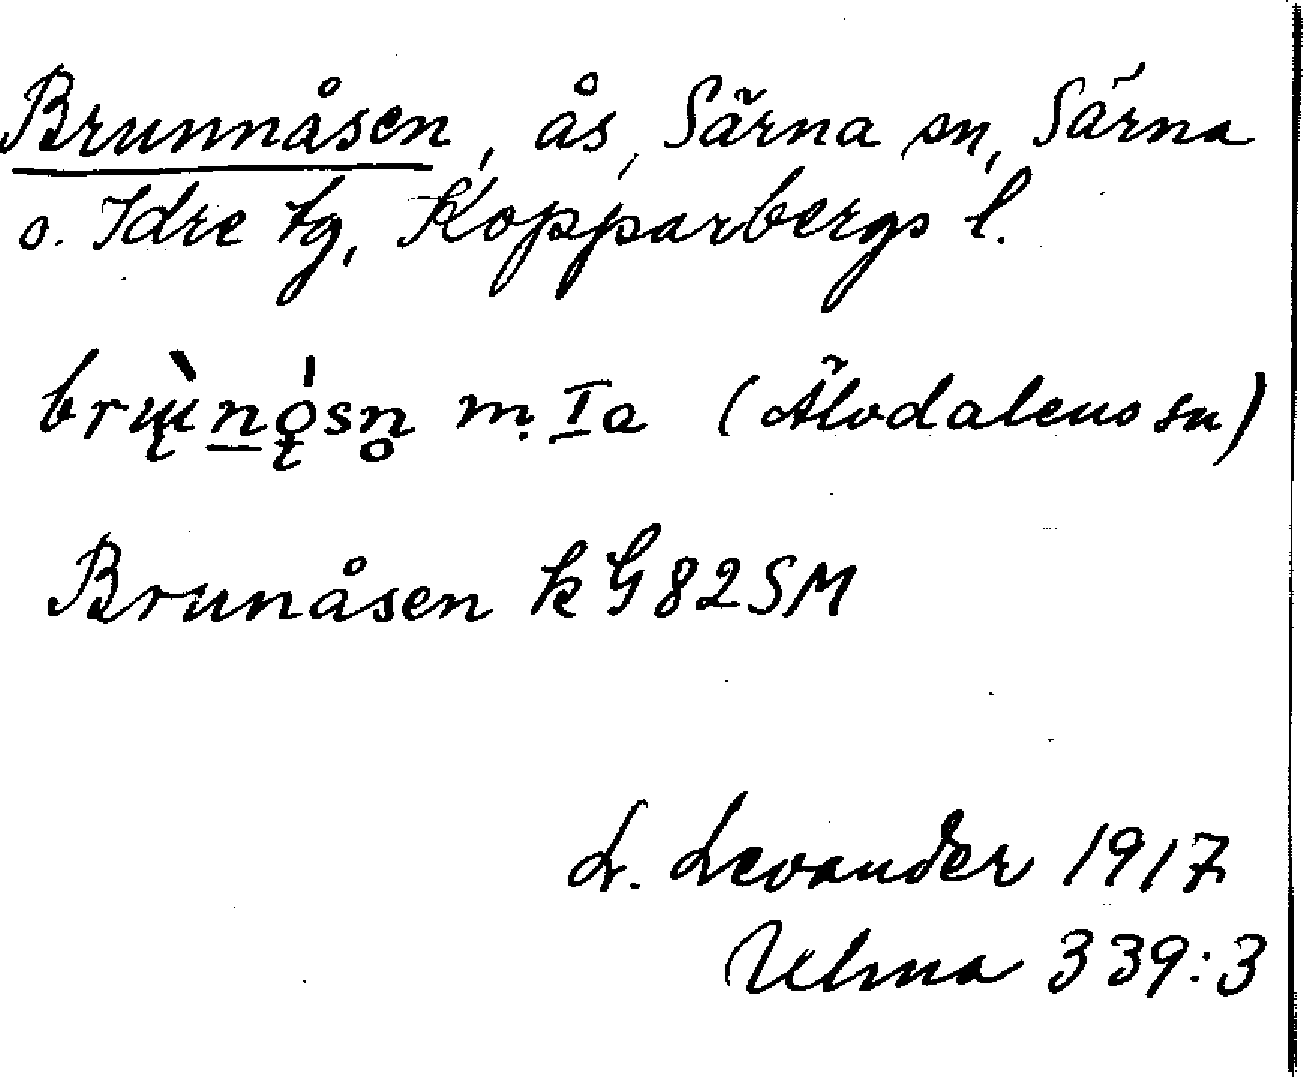 Brunnåsen, ås, Särna sn, Särna
o. Idre tg, Kopparbergs l.
brɯ̨̀n̠ǫ́sn̥ m. Ia (Älvdalens sn)
Brunåsen k G82SM
L. Levander 1917
Ulma 339:3